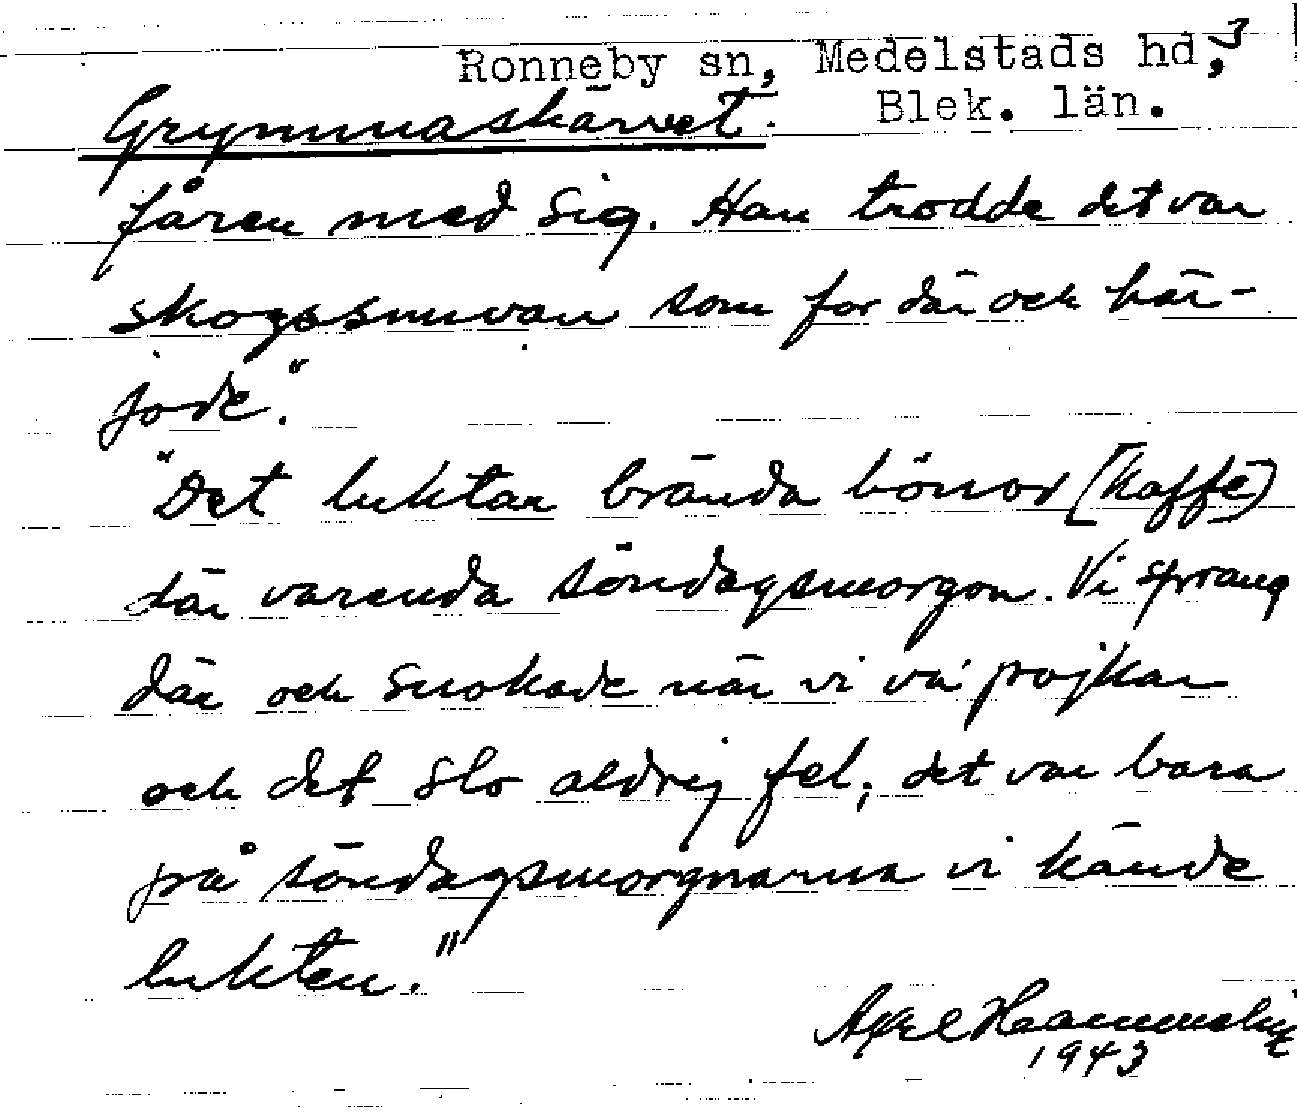 Ronneby sn, Medelstads hd, 3
Blek. län.
Grymmaskärvet.
fåren med sig. Han trodde det var
skogssnuvan som for där och här-
jode."
"Det luktar brända bönor (kaffe)
där varenda söndagsmorgon. Vi sprang
där och snokade när vi va' pojkar
och det slo aldrig fel, det var bara
på söndagsmorgnarna vi kände
lukten."
Axel
1943